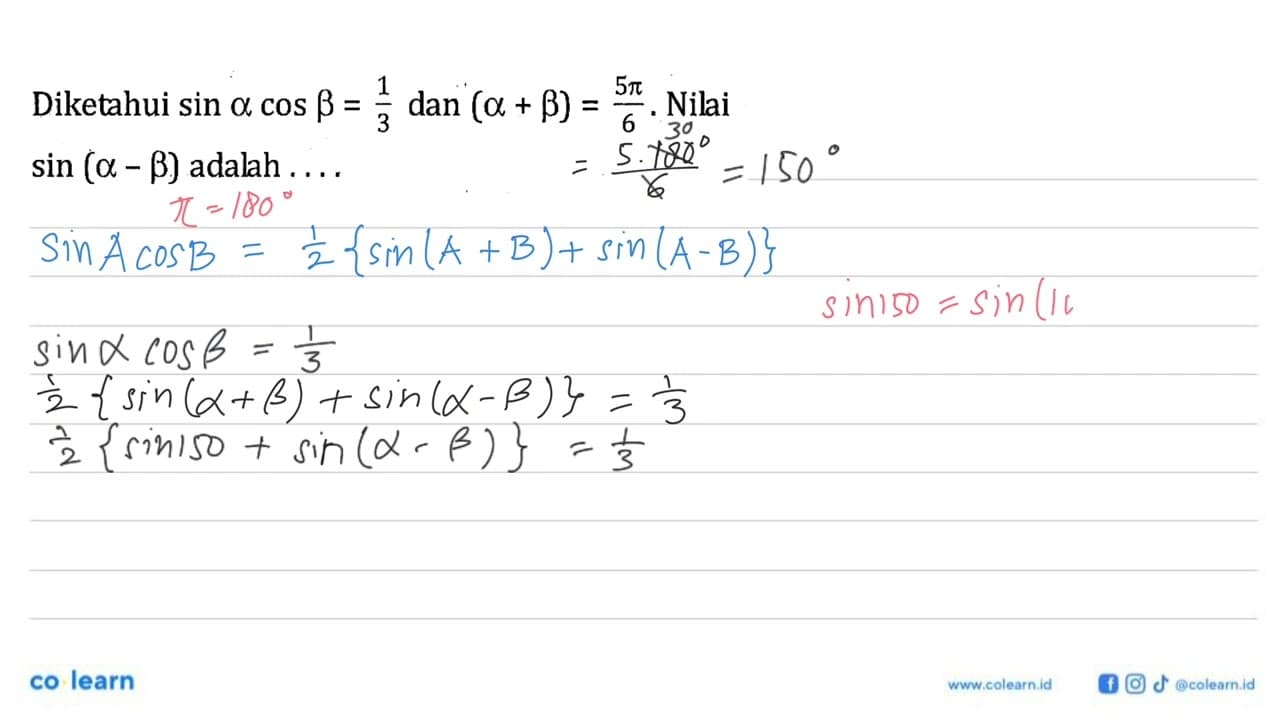 Diketahui sin α cos β = 1/3 dan (α + β) = 5π/6 . Nilai
sin (α – β) adalah . . . .
= 5.180°/6 = 150°
30
π = 180°
Sin A cos B = 1/2 {sin(A + B) + sin(A - B)}
sin150 = sin(1
sin α cos β = 1/3
1/2 {sin(α+β) + sin(α-β)} = 1/3
1/2 {sin150 + sin(α - β)} = 1/3
co learn
www.colearn.id
@colearn.id